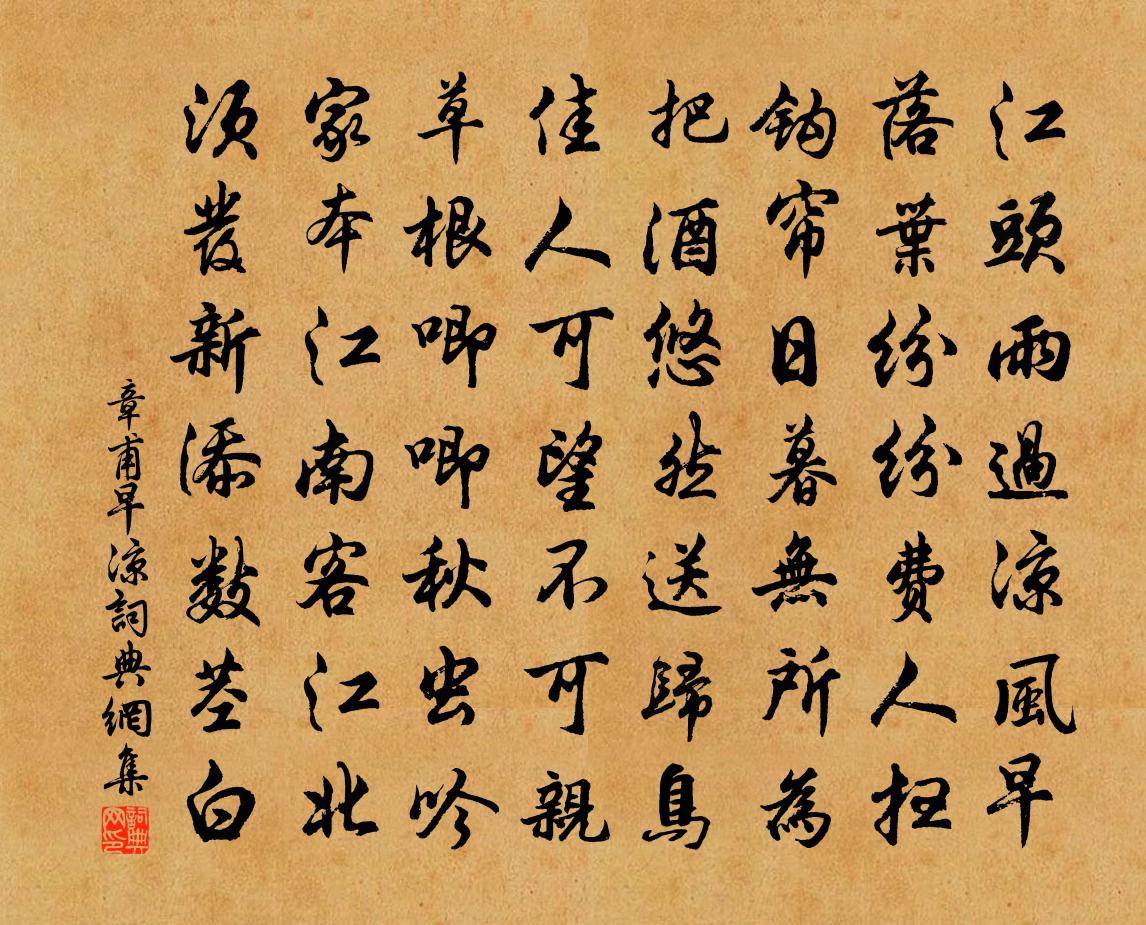 江頭雨過涼風早
落葉紛紛費人扫
鈎帘日暮無所為
把酒悠然送歸鳥
佳人可望不可親
草根唧唧秋虫吟
家本江南客江北
須發新添數莖白
章甫早涼詞典網集
詞典网印